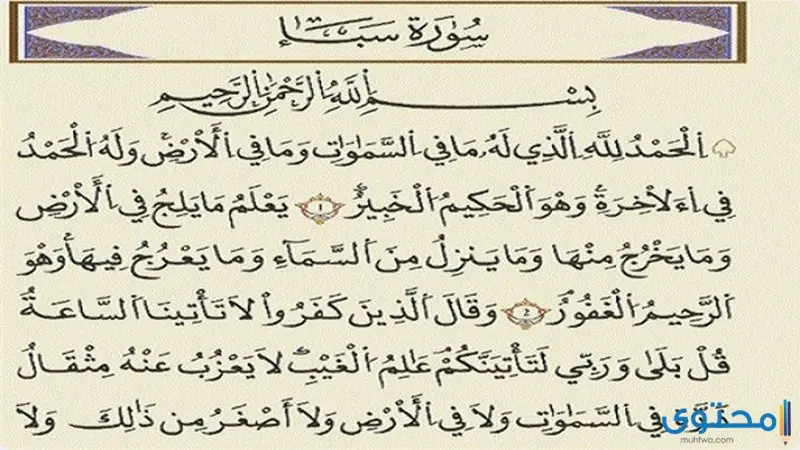 سُورَةُ سَبَإٍ
بِسْمِ اِللَّهِ اِلرَّحْمَٰنِ اِلرَّحِيمِ
اِلْحَمْدُ لِلَّهِ اِلَّذِي لَهُۥ مَا فِي اِلسَّمَٰوَٰتِ وَمَا فِي اِلْأَرْضِ وَلَهُ اُلْحَمْدُ
فِي اِءَلَاخِرَةِ وَهُوَ اَلْحَكِيمُ اُلْخَبِيرُ ١ يَعْلَمُ مَا يَلِجُ فِي اِلْأَرْضِ
وَمَا يَخْرُجُ مِنْهَا وَمَا يَنزِلُ مِنَ اَلسَّمَآءِ وَمَا يَعْرُجُ فِيهَا وَهُوَ
اَلرَّحِيمُ اُلْغَفُورُ ٢ وَقَالَ اَلَّذِينَ كَفَرُواْ لَا تَأْتِينَا اَلسَّاعَةُ
قُلْ بَلَىٰ وَرَبِّي لَتَأْتِيَنَّكُمْ عَٰلِمُ اُلْغَيْبِ لَا يَعْزُبُ عَنْهُ مِثْقَالُ
ذَرَّةٍ فِي اِلسَّمَٰوَٰتِ وَلَا فِي اِلْأَرْضِ وَلَا أَصْغَرُ مِن ذَٰلِكَ وَلَا
محتوى
muhtwa.com